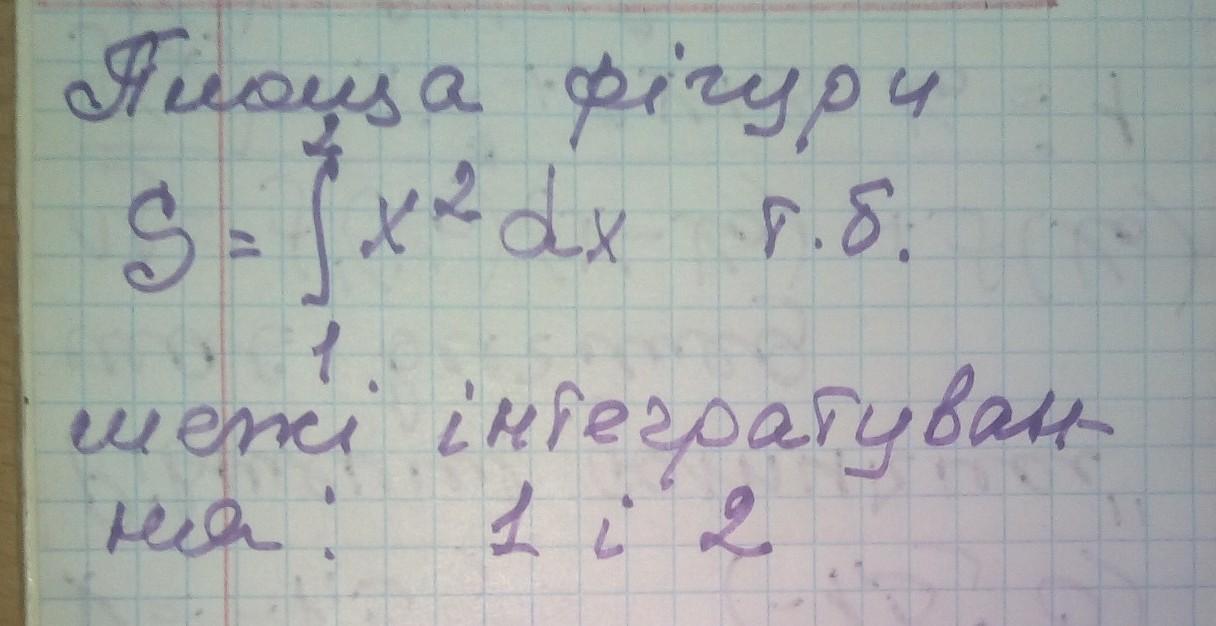 Площа фігури
S = ∫₁² x² dx т.б.
межі інтегратуван-
ня: 1 і 2